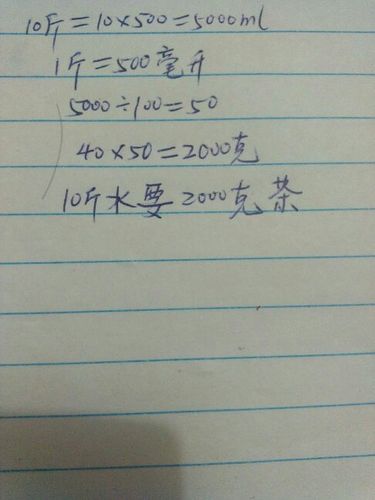 10斤=10×500=5000ml
1斤=500毫升
5000÷100=50
40×50=2000克
10斤水要2000克茶